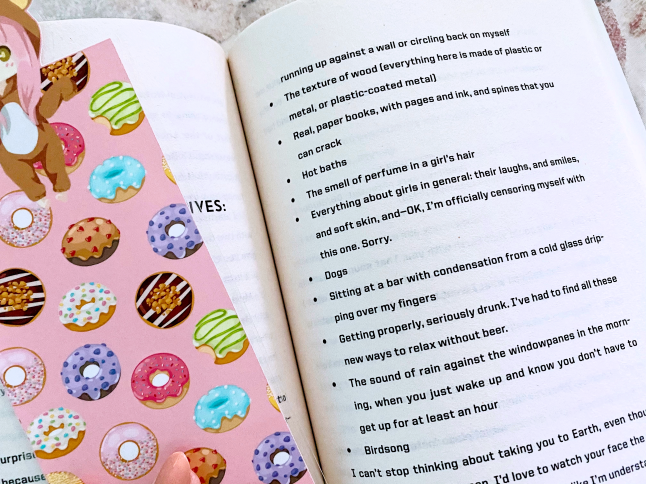 IVES:
surpris
because
running up against a wall or circling back on myself
• The texture of wood (everything here is made of plastic or
metal, or plastic-coated metal)
• Real, paper books, with pages and ink, and spines that you
can crack
• Hot baths
• The smell of perfume in a girl's hair
• Everything about girls in general: their laughs, and smiles,
and soft skin, and–OK, I'm officially censoring myself with
this one. Sorry.
• Dogs
• Sitting at a bar with condensation from a cold glass drip-
ping over my fingers
• Getting properly, seriously drunk. I've had to find all these
new ways to relax without beer.
• The sound of rain against the windowpanes in the morn-
ing, when you just wake up and know you don't have to
get up for at least an hour
• Birdsong
I can't stop thinking about taking you to Earth, even thou
I'd love to watch your face the
like I'm underst